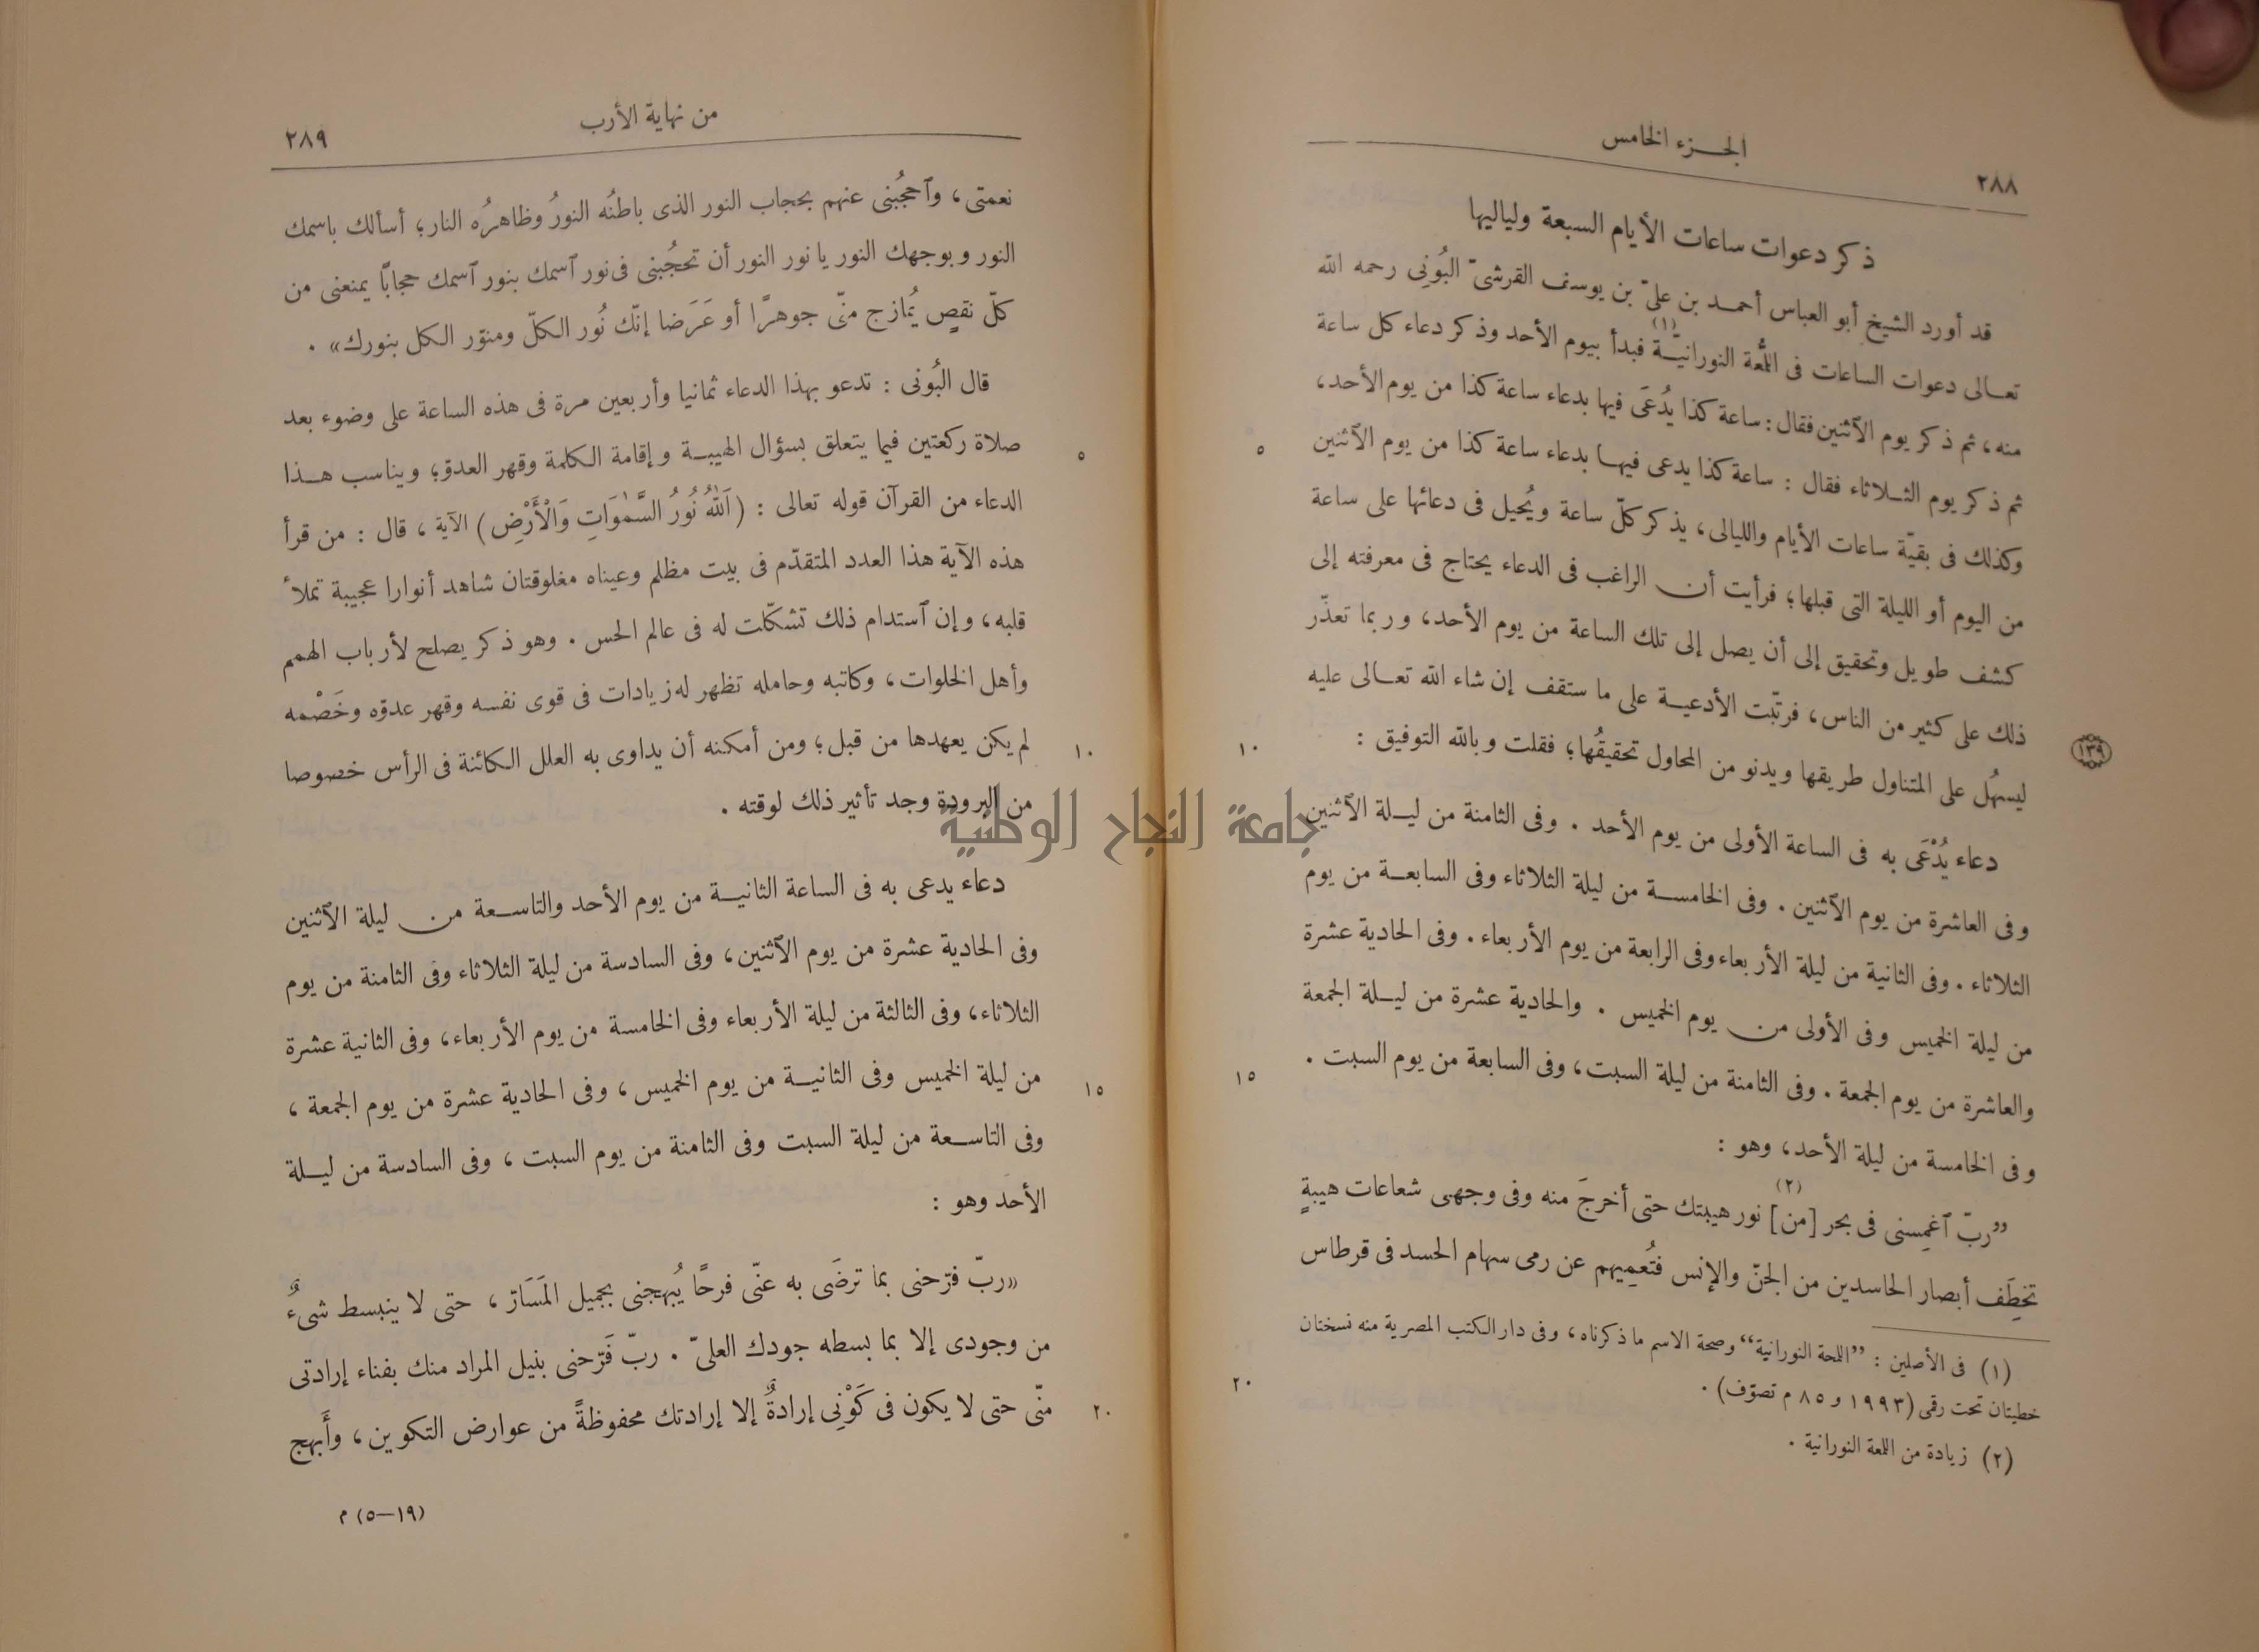 ٢٨٨
الجـزء الخامس
ذكر دعوات ساعات الأيام السبعة ولياليها
قد أورد الشيخ أبو العباس أحمـد بن علىّ بن يوسف القرشىّ البُونِى رحمه الله
تعـالى دعوات الساعات فى اللُّمعة النورانيّـة (١) فبدأ بيوم الأحد وذكر دعاء كل ساعة
منه، ثم ذكر يوم الاثنين فقال: ساعة كذا يُدعَى فيها بدعاء ساعة كذا من يوم الأحد،
ثم ذكر يوم الثـلاثاء فقال : ساعة كذا يدعى فيهـا بدعاء ساعة كذا من يوم الاثنين
وكذلك فى بقيّة ساعات الأيام والليالى، يذكر كلّ ساعة ويُحيل فى دعائها على ساعة
من اليوم أو الليلة التى قبلها؛ فرأيت أن الراغب فى الدعاء يحتاج فى معرفته إلى
كشف طويل وتحقيق إلى أن يصل إلى تلك الساعة من يوم الأحد، وربما تعذّر
ذلك على كثير من الناس، فرتّبت الأدعيـة على ما ستقف إن شاء الله تعـالى عليه
ليسهُل على المتناول طريقها ويدنو من المحاول تحقيقُها؛ فقلت وبالله التوفيق :
دعاء يُدْعَى به فى الساعة الأولى من يوم الأحد . وفى الثامنة من ليـلة الاثنين
وفى العاشرة من يوم الاثنين . وفى الخامسـة من ليلة الثلاثاء وفى السابعـة من يوم
الثلاثاء . وفى الثانية من ليلة الأربعاء وفى الرابعة من يوم الأربعاء . وفى الحادية عشرة
من ليلة الخميس وفى الأولى من يوم الخميس . والحادية عشرة من ليـلة الجمعة
والعاشرة من يوم الجمعة . وفى الثامنة من ليلة السبت، وفى السابعة من يوم السبت .
وفى الخامسة من ليلة الأحد، وهو :
”ربّ اغمِسنى فى بحر [من] (٢) نور هيبتك حتى أخرجَ منه وفى وجهى شعاعات هيبةٍ
تخطِف أبصار الحاسدين من الجنّ والإنس فتُعمِيهم عن رمى سهام الحسد فى قرطاس
(١) فى الأصلين : ”اللمحة النورانية“ وصحة الاسم ما ذكرناه، وفى دار الكتب المصرية منه نسختان
خطيتان تحت رقمى (١٩٩٣ و ٨٥ م تصوّف) .
(٢) زيادة من اللمعة النورانية .
٥
١٠
١٥
٢٠
١٣٩
من نهاية الأرب
٢٨٩
نعمتى، واحجُبنى عنهم بحجاب النور الذى باطنُه النورُ وظاهرُه النار؛ أسألك باسمك
النور وبوجهك النور يا نور النور أن تحجُبنى فى نور اسمك بنور اسمك حجابًا يمنعنى من
كلّ نقصٍ يُمازج منّى جوهرًا أو عَرَضا إنّك نُور الكلّ ومنوّر الكل بنورك» .
قال البُونى : تدعو بهذا الدعاء ثمانيا وأربعين مرة فى هذه الساعة على وضوء بعد
صلاة ركعتين فيما يتعلق بسؤال الهيبـة وإقامة الكلمة وقهر العدوّ؛ ويناسب هـذا
الدعاء من القرآن قوله تعالى : (اَللهُ نُورُ السَّمٰوَاتِ وَالْأَرْضِ) الآية ، قال : من قرأ
هذه الآية هذا العدد المتقدّم فى بيت مظلم وعيناه مغلوقتان شاهد أنوارا عجيبة تملأ
قلبه، وإن استدام ذلك تشكّلت له فى عالم الحس . وهو ذكر يصلح لأرباب الهمم
وأهل الخلوات، وكاتبه وحامله تظهر له زيادات فى قوى نفسه وقهر عدوّه وخَصْمه
لم يكن يعهدها من قبل؛ ومن أمكنه أن يداوى به العلل الكائنة فى الرأس خصوصا
من البرودة وجد تأثير ذلك لوقته .
دعاء يدعى به فى الساعة الثانيـة من يوم الأحد والتاسـعة من ليلة الاثنين
وفى الحادية عشرة من يوم الاثنين، وفى السادسة من ليلة الثلاثاء وفى الثامنة من يوم
الثلاثاء، وفى الثالثة من ليلة الأربعاء وفى الخامسة من يوم الأربعاء، وفى الثانية عشرة
من ليلة الخميس وفى الثانيـة من يوم الخميس، وفى الحادية عشرة من يوم الجمعة ،
وفى التاسـعة من ليلة السبت وفى الثامنة من يوم السبت ، وفى السادسة من ليـلة
الأحد وهو :
«ربّ فرّحنى بما ترضَى به عنّى فرحًا يُبهجنى بجميل المَسَارّ ، حتى لا ينبسط شىءٌ
من وجودى إلا بما بسطه جودك العلىّ . ربّ فَرّحنى بنيل المراد منك بفناء إرادتى
منّى حتى لا يكون فى كَوْنِى إرادةٌ إلا إرادتك محفوظةً من عوارض التكوين، وأَبهج
٥
١٠
١٥
٢٠
(١٩–٥) م
جامعة النجاح الوطنية